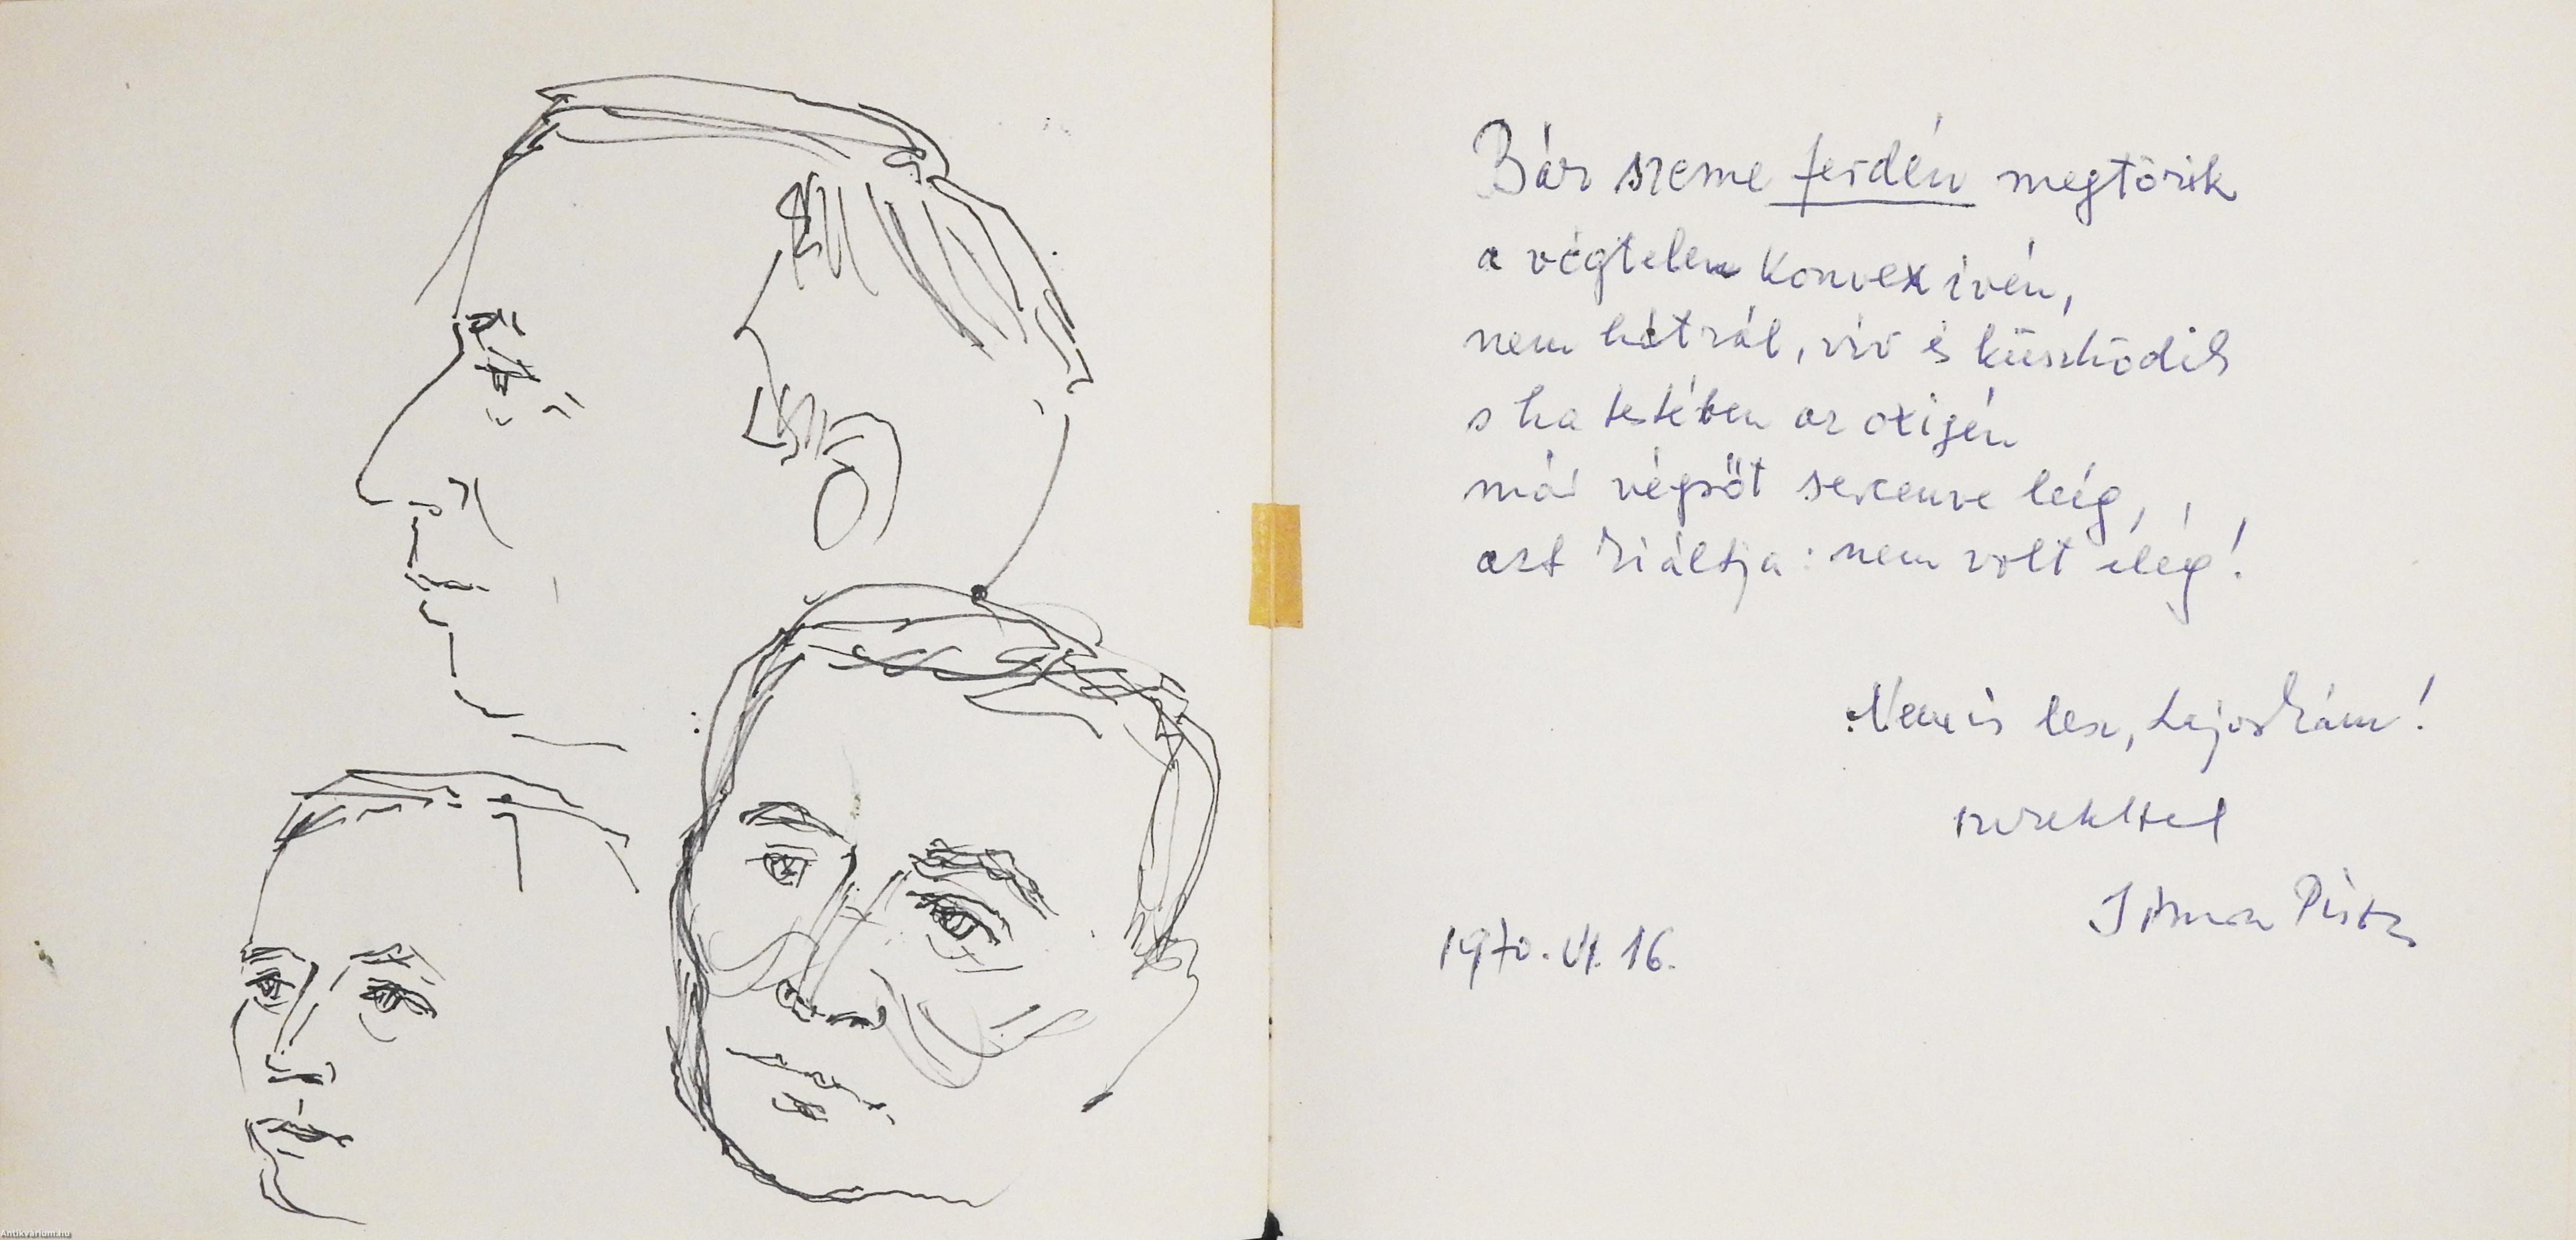 Bár szeme ferdén megtörik
a végtelen konvex ivén,
nem hátrál, viv és küszködik
s ha testében az oxigén
már végsőt sercenve leég,
azt kiáltja: nem volt elég!
Nem is lesz, Lajoskám!
szeretettel
Simon Pista
1970. VI. 16.
Antikvarium.hu